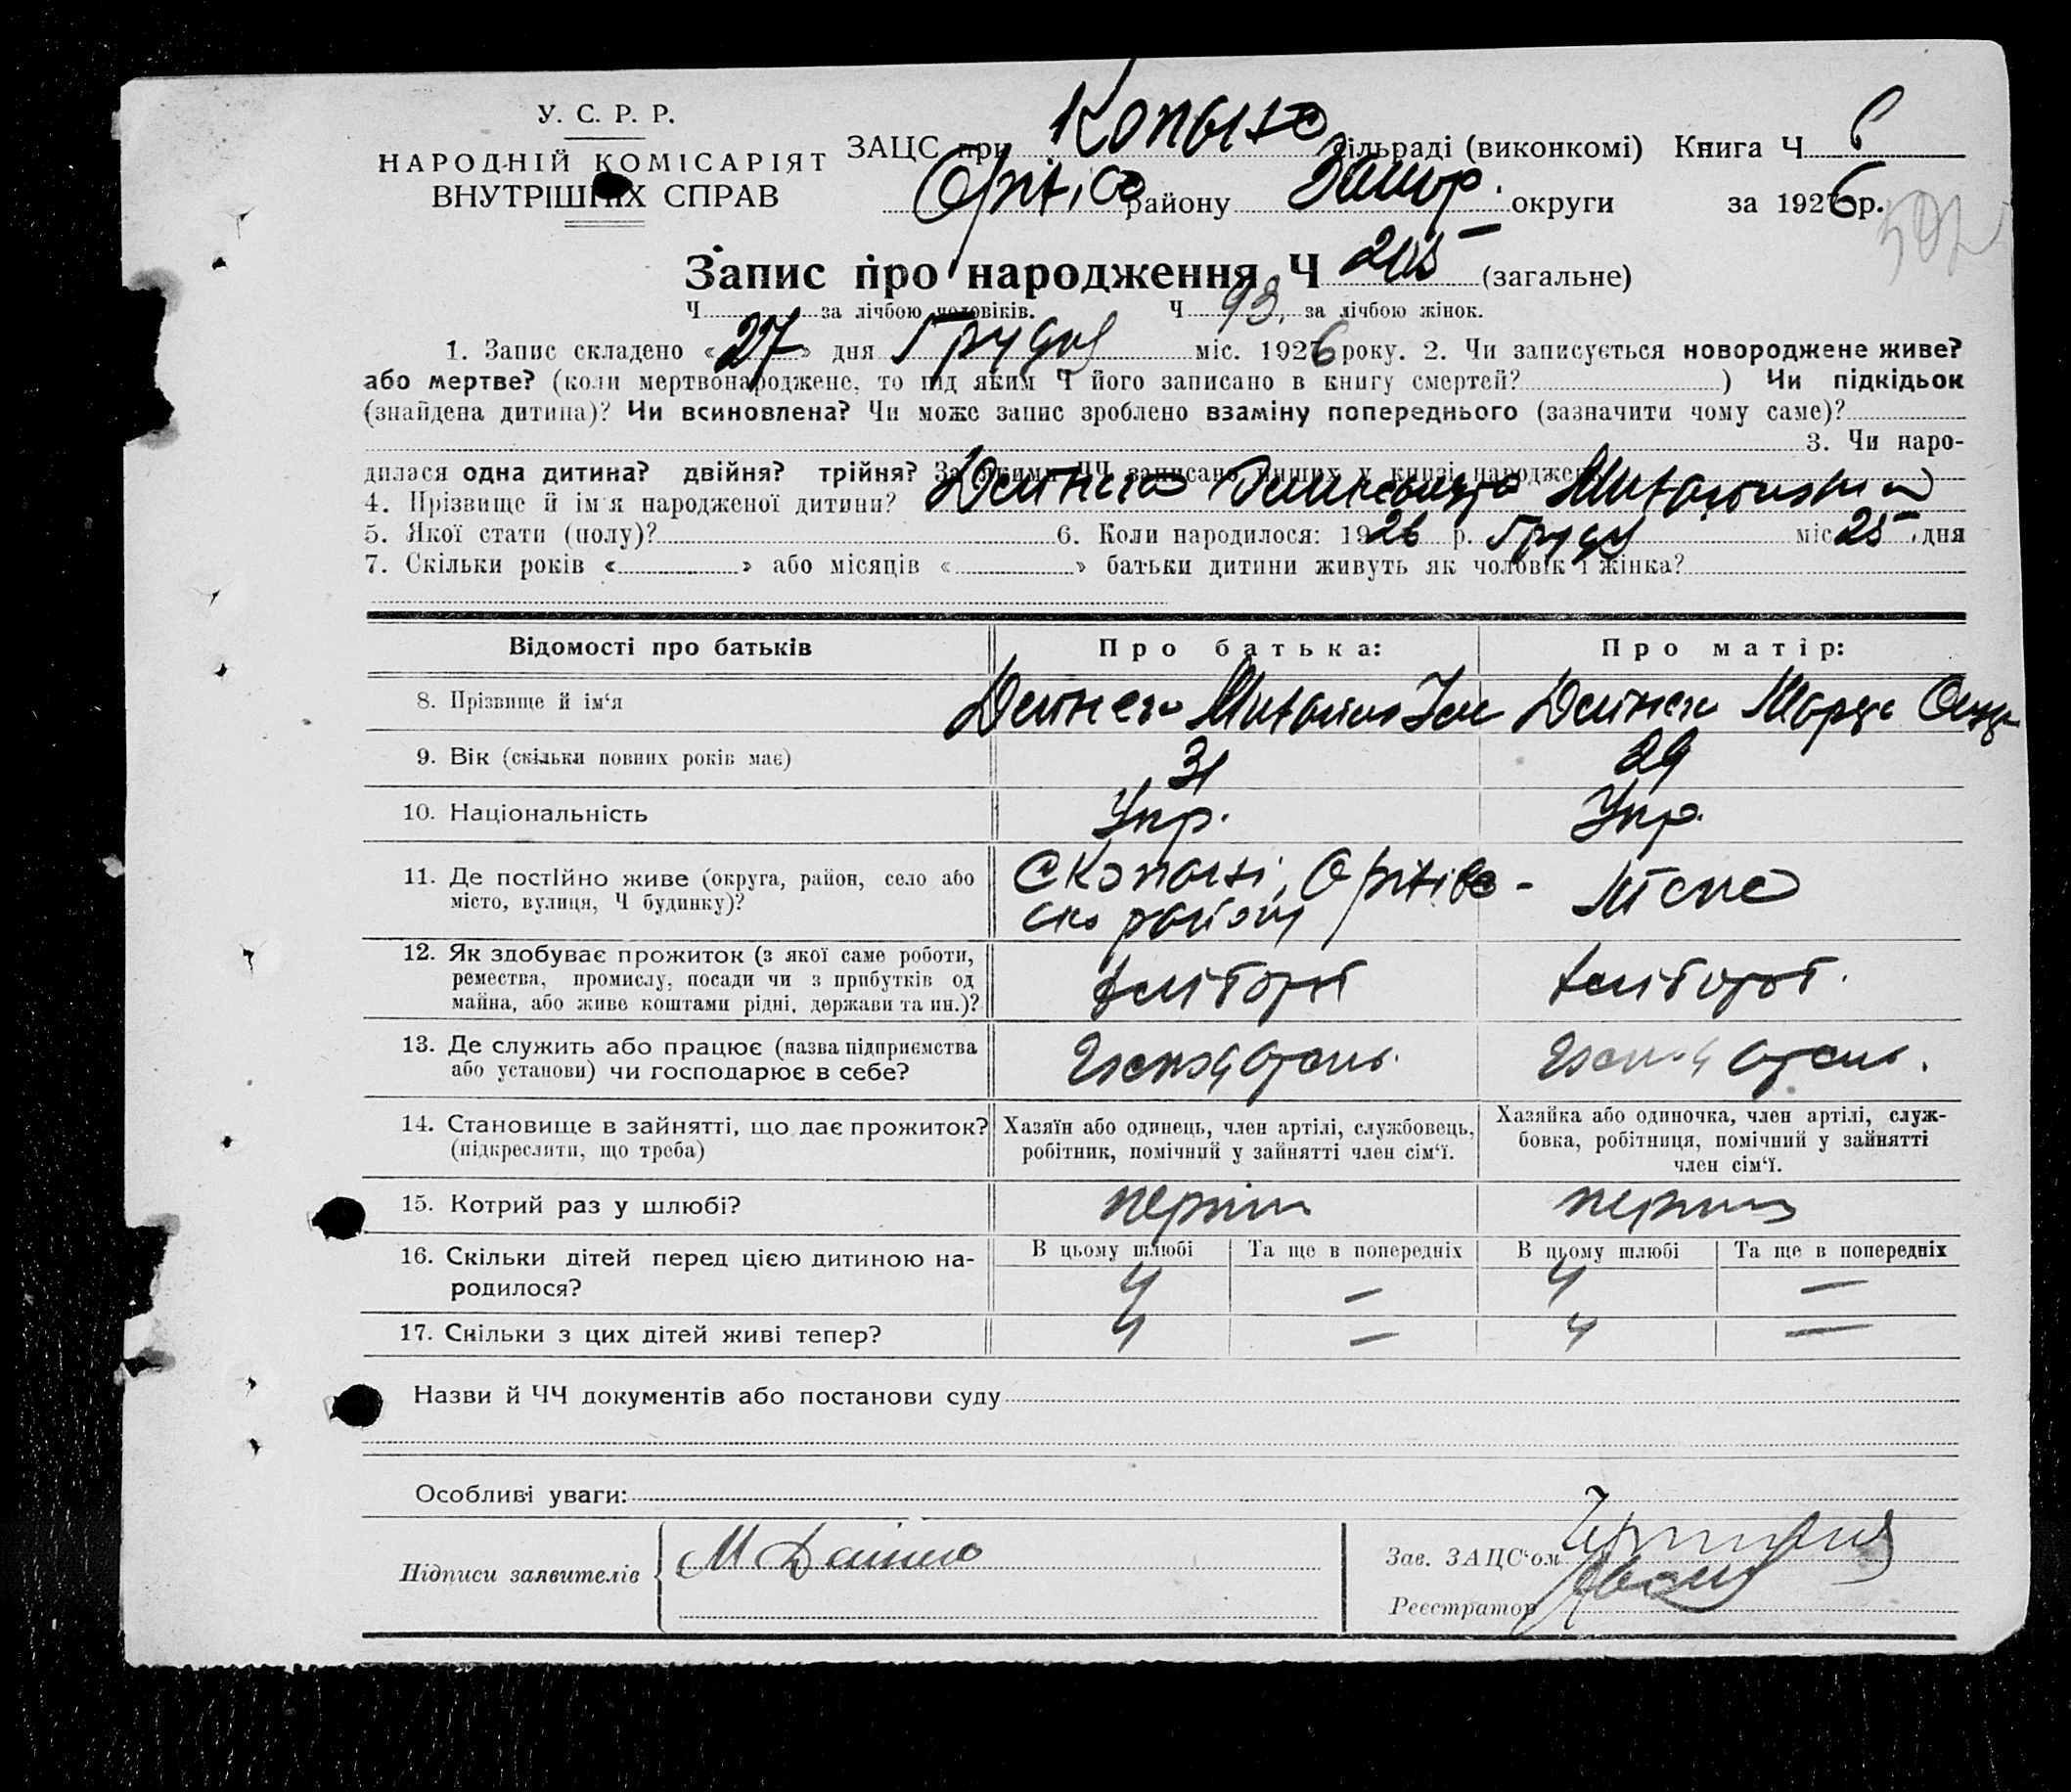 У. С. Р. Р.
НАРОДНІЙ КОМІСАРІЯТ
ВНУТРІШНІХ СПРАВ
ЗАЦС при Копаня сільраді (виконкомі) Книга Ч
району Запор. округи за 1926 р.
Запис про народження Ч 205 (загальне)
Ч за лічбою чоловіків. Ч 93, за лічбою жінок.
1. Запис складено «27» дня Грудня міс. 1926 року. 2. Чи записується новороджене живе?
або мертве? (коли мертвонароджене, то під яким Ч його записано в книгу смертей? ) Чи підкідьок
(знайдена дитина)? Чи всиновлена? Чи може запис зроблено взаміну попереднього (зазначити чому саме)?
3. Чи наро-
дилася одна дитина? двійня? трійня? За якими ЧЧ записано инших у книзі народжен
4. Прізвище й ім'я народженої дитини? Дейнега
5. Якої стати (полу)? 6. Коли народилося: 1926 р. Грудня міс. 25 дня
7. Скільки років « » або місяців « » батьки дитини живуть як чоловік і жінка?
Відомості про батьків Про батька: Про матір:
8. Прізвище й ім‘я Дейнега Михайло Дейнега
9. Вік (скільки повних років має) 31 29
10. Національність Укр. Укр.
11. Де постійно живе (округа, район, село або
місто, вулиця, Ч будинку)?
12. Як здобуває прожиток (з якої саме роботи,
ремества, промислу, посади чи з прибутків од
майна, або живе коштами рідні, держави та ин.)? хлібороб хлібороб.
13. Де служить або працює (назва підприємства
або установи) чи господарює в себе?
14. Становище в зайнятті, що дає прожиток?
(підкреслити, що треба)
Хазяїн або одинець, член артілі, службовець,
робітник, помічний у зайнятті член сім‘ї.
Хазяйка або одиночка, член артілі, служ-
бовка, робітниця, помічний у зайнятті
член сім‘ї.
15. Котрий раз у шлюбі? перший перший
16. Скільки дітей перед цією дитиною на-
родилося?
В цьому шлюбі Та ще в попередніх В цьому шлюбі Та ще в попередніх
4 — 4 —
17. Скільки з цих дітей живі тепер? 4 — 4 —
Назви й ЧЧ документів або постанови суду
Особливі уваги:
Підписи заявителів М
Зав. ЗАЦС‘ом
Реєстратор